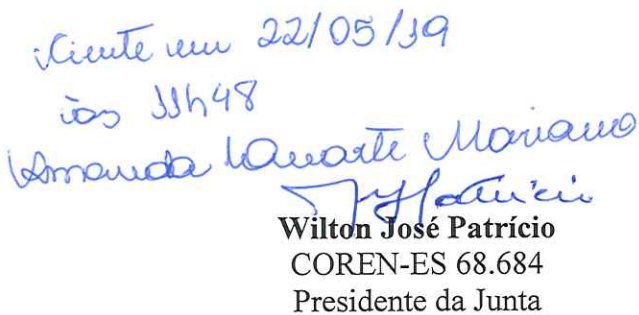 Ciente em 22/05/19
às 11h48
Amanda Duarte Mariano
Wilton José Patrício
COREN-ES 68.684
Presidente da Junta